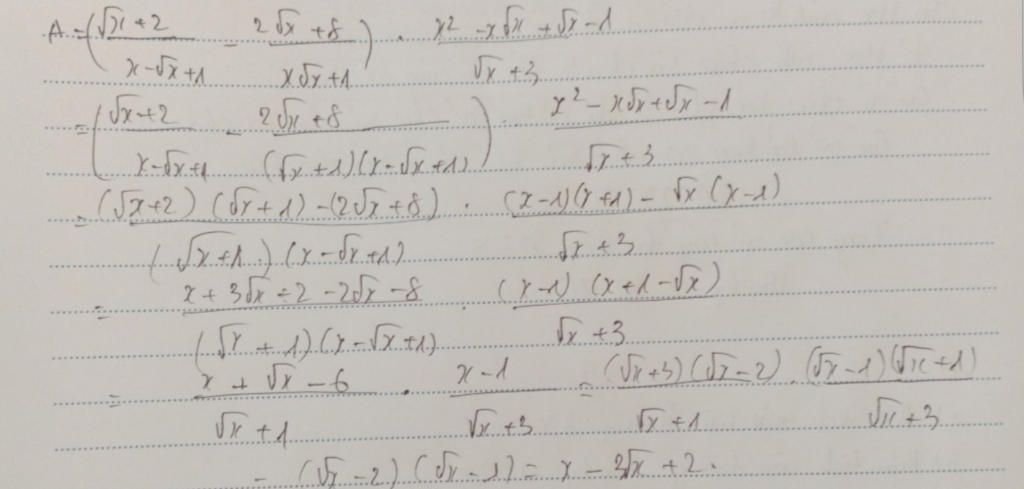 A = ( (√x + 2)/(x - √x + 1) - (2√x + 8)/(x√x + 1) ) . (x² - x√x + √x - 1)/(√x + 3)
= ( (√x + 2)/(x - √x + 1) - (2√x + 8)/((√x + 1)(x - √x + 1)) ) . (x² - x√x + √x - 1)/(√x + 3)
= ((√x + 2)(√x + 1) - (2√x + 8))/((√x + 1)(x - √x + 1)) . ((x - 1)(x + 1) - √x(x - 1))/(√x + 3)
= (x + 3√x + 2 - 2√x - 8)/((√x + 1)(x - √x + 1)) . ((x - 1)(x + 1 - √x))/(√x + 3)
= (x + √x - 6)/(√x + 1) . (x - 1)/(√x + 3) = ((√x + 3)(√x - 2))/(√x + 1) . ((√x - 1)(√x + 1))/(√x + 3)
= (√x - 2)(√x - 1) = x - 3√x + 2.